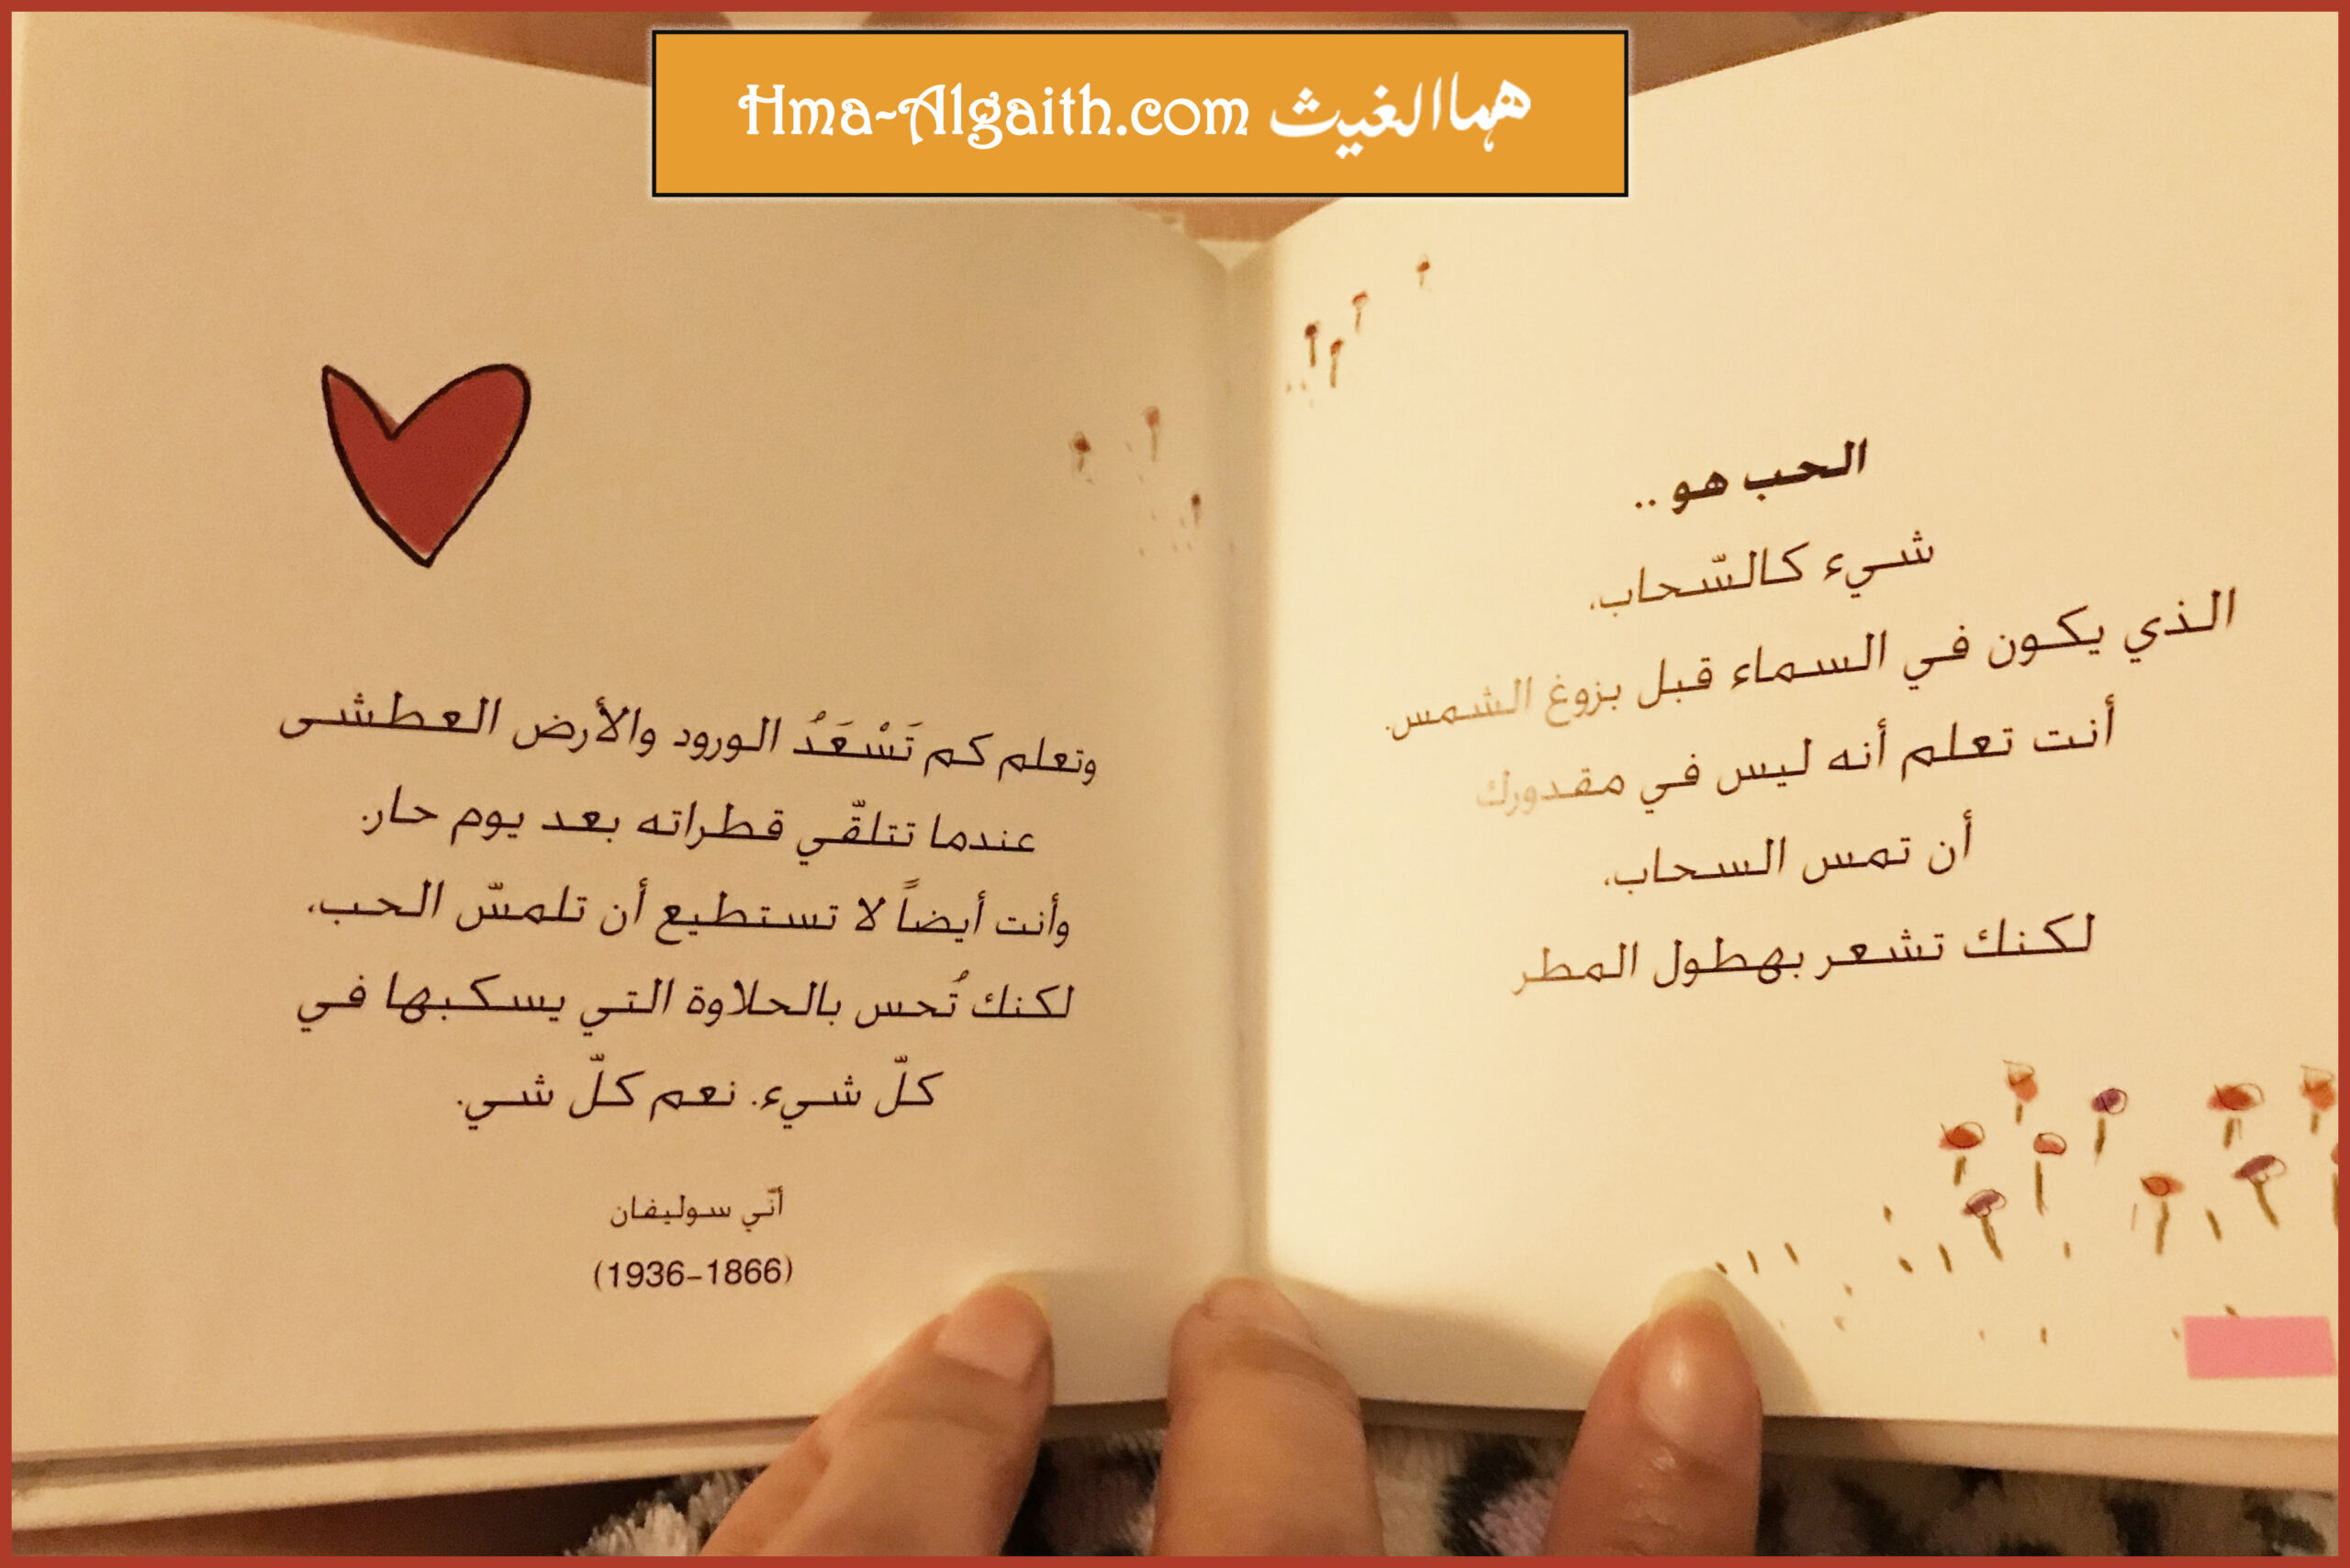 Hma-Algaith.com هماالغيث
الحب هو ..
شيء كالسّحاب،
الذي يكون في السماء قبل بزوغ الشمس.
أنت تعلم أنه ليس في مقدورك
أن تمس السحاب،
لكنك تشعر بهطول المطر
وتعلم كم تَسْعَدُ الورود والأرض العطشى
عندما تتلقّي قطراته بعد يوم حار.
وأنت أيضاً لا تستطيع أن تلمسّ الحب،
لكنك تُحس بالحلاوة التي يسكبها في
كلّ شيء. نعم كلّ شي.
أنّي سوليفان
(1866–1936)